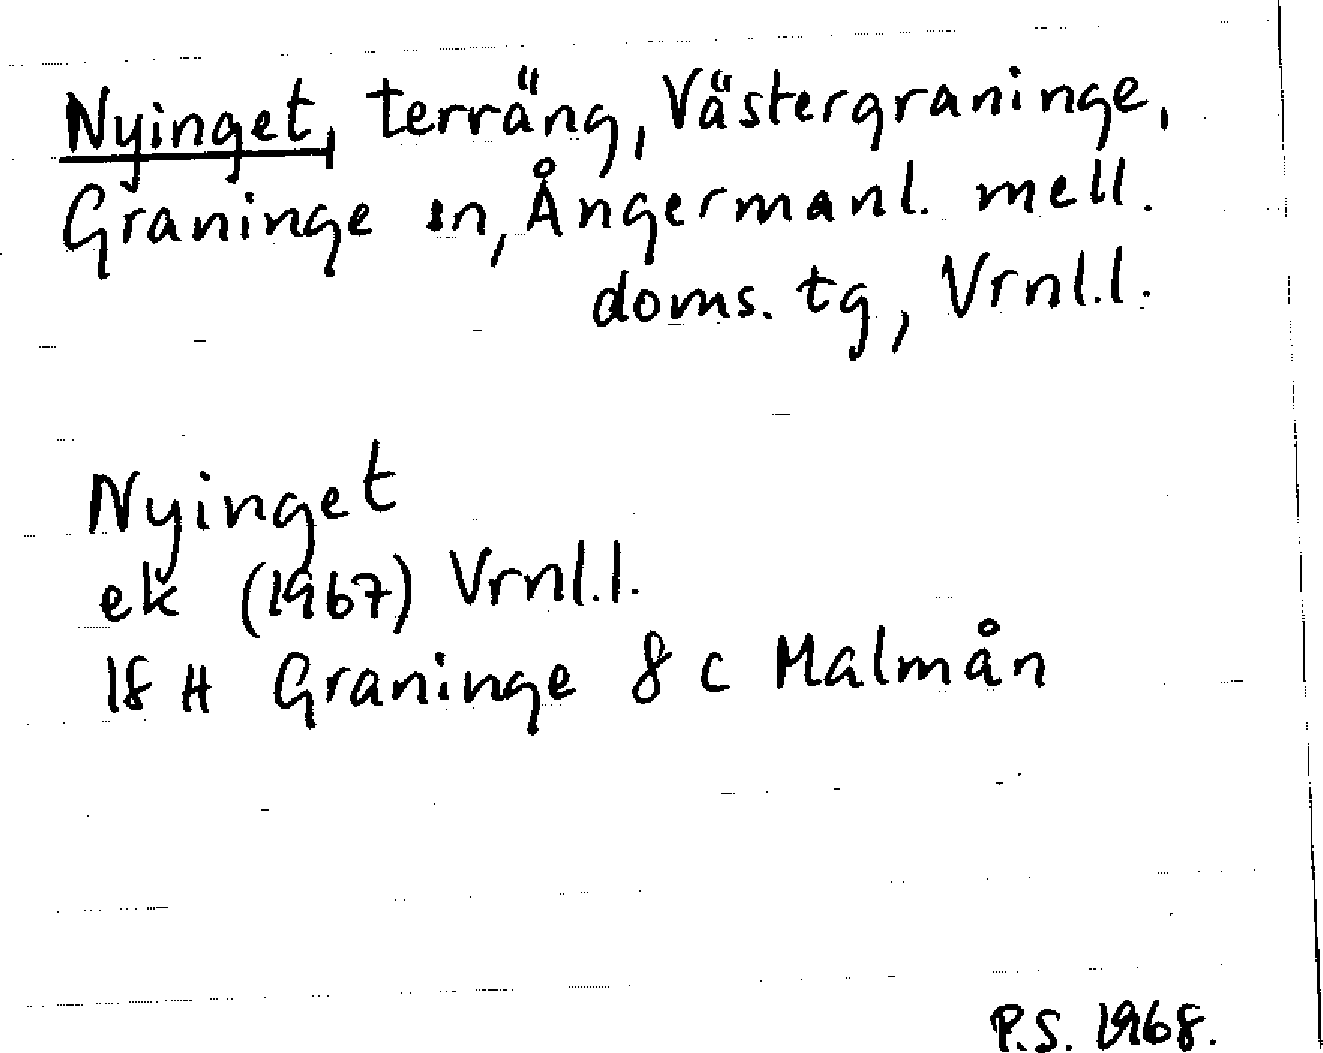 Nyinget, terräng, Västergraninge,
Graninge sn, Ångermanl. mell.
doms. tg, Vrnl.l.
Nyinget
ek (1967) Vrnl.l.
18 H Graninge 8 c Malmån
P.S. 1968.